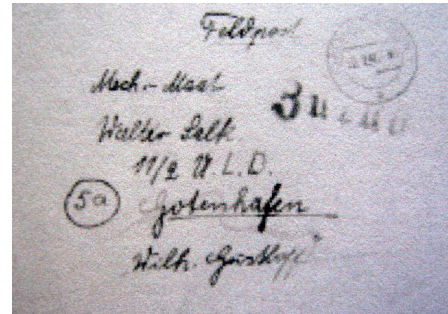 Feldpost
Mech.-Maat
Walter Salk
11/2 U.L.D.
5a Gotenhafen
Wilh. Gustloff"